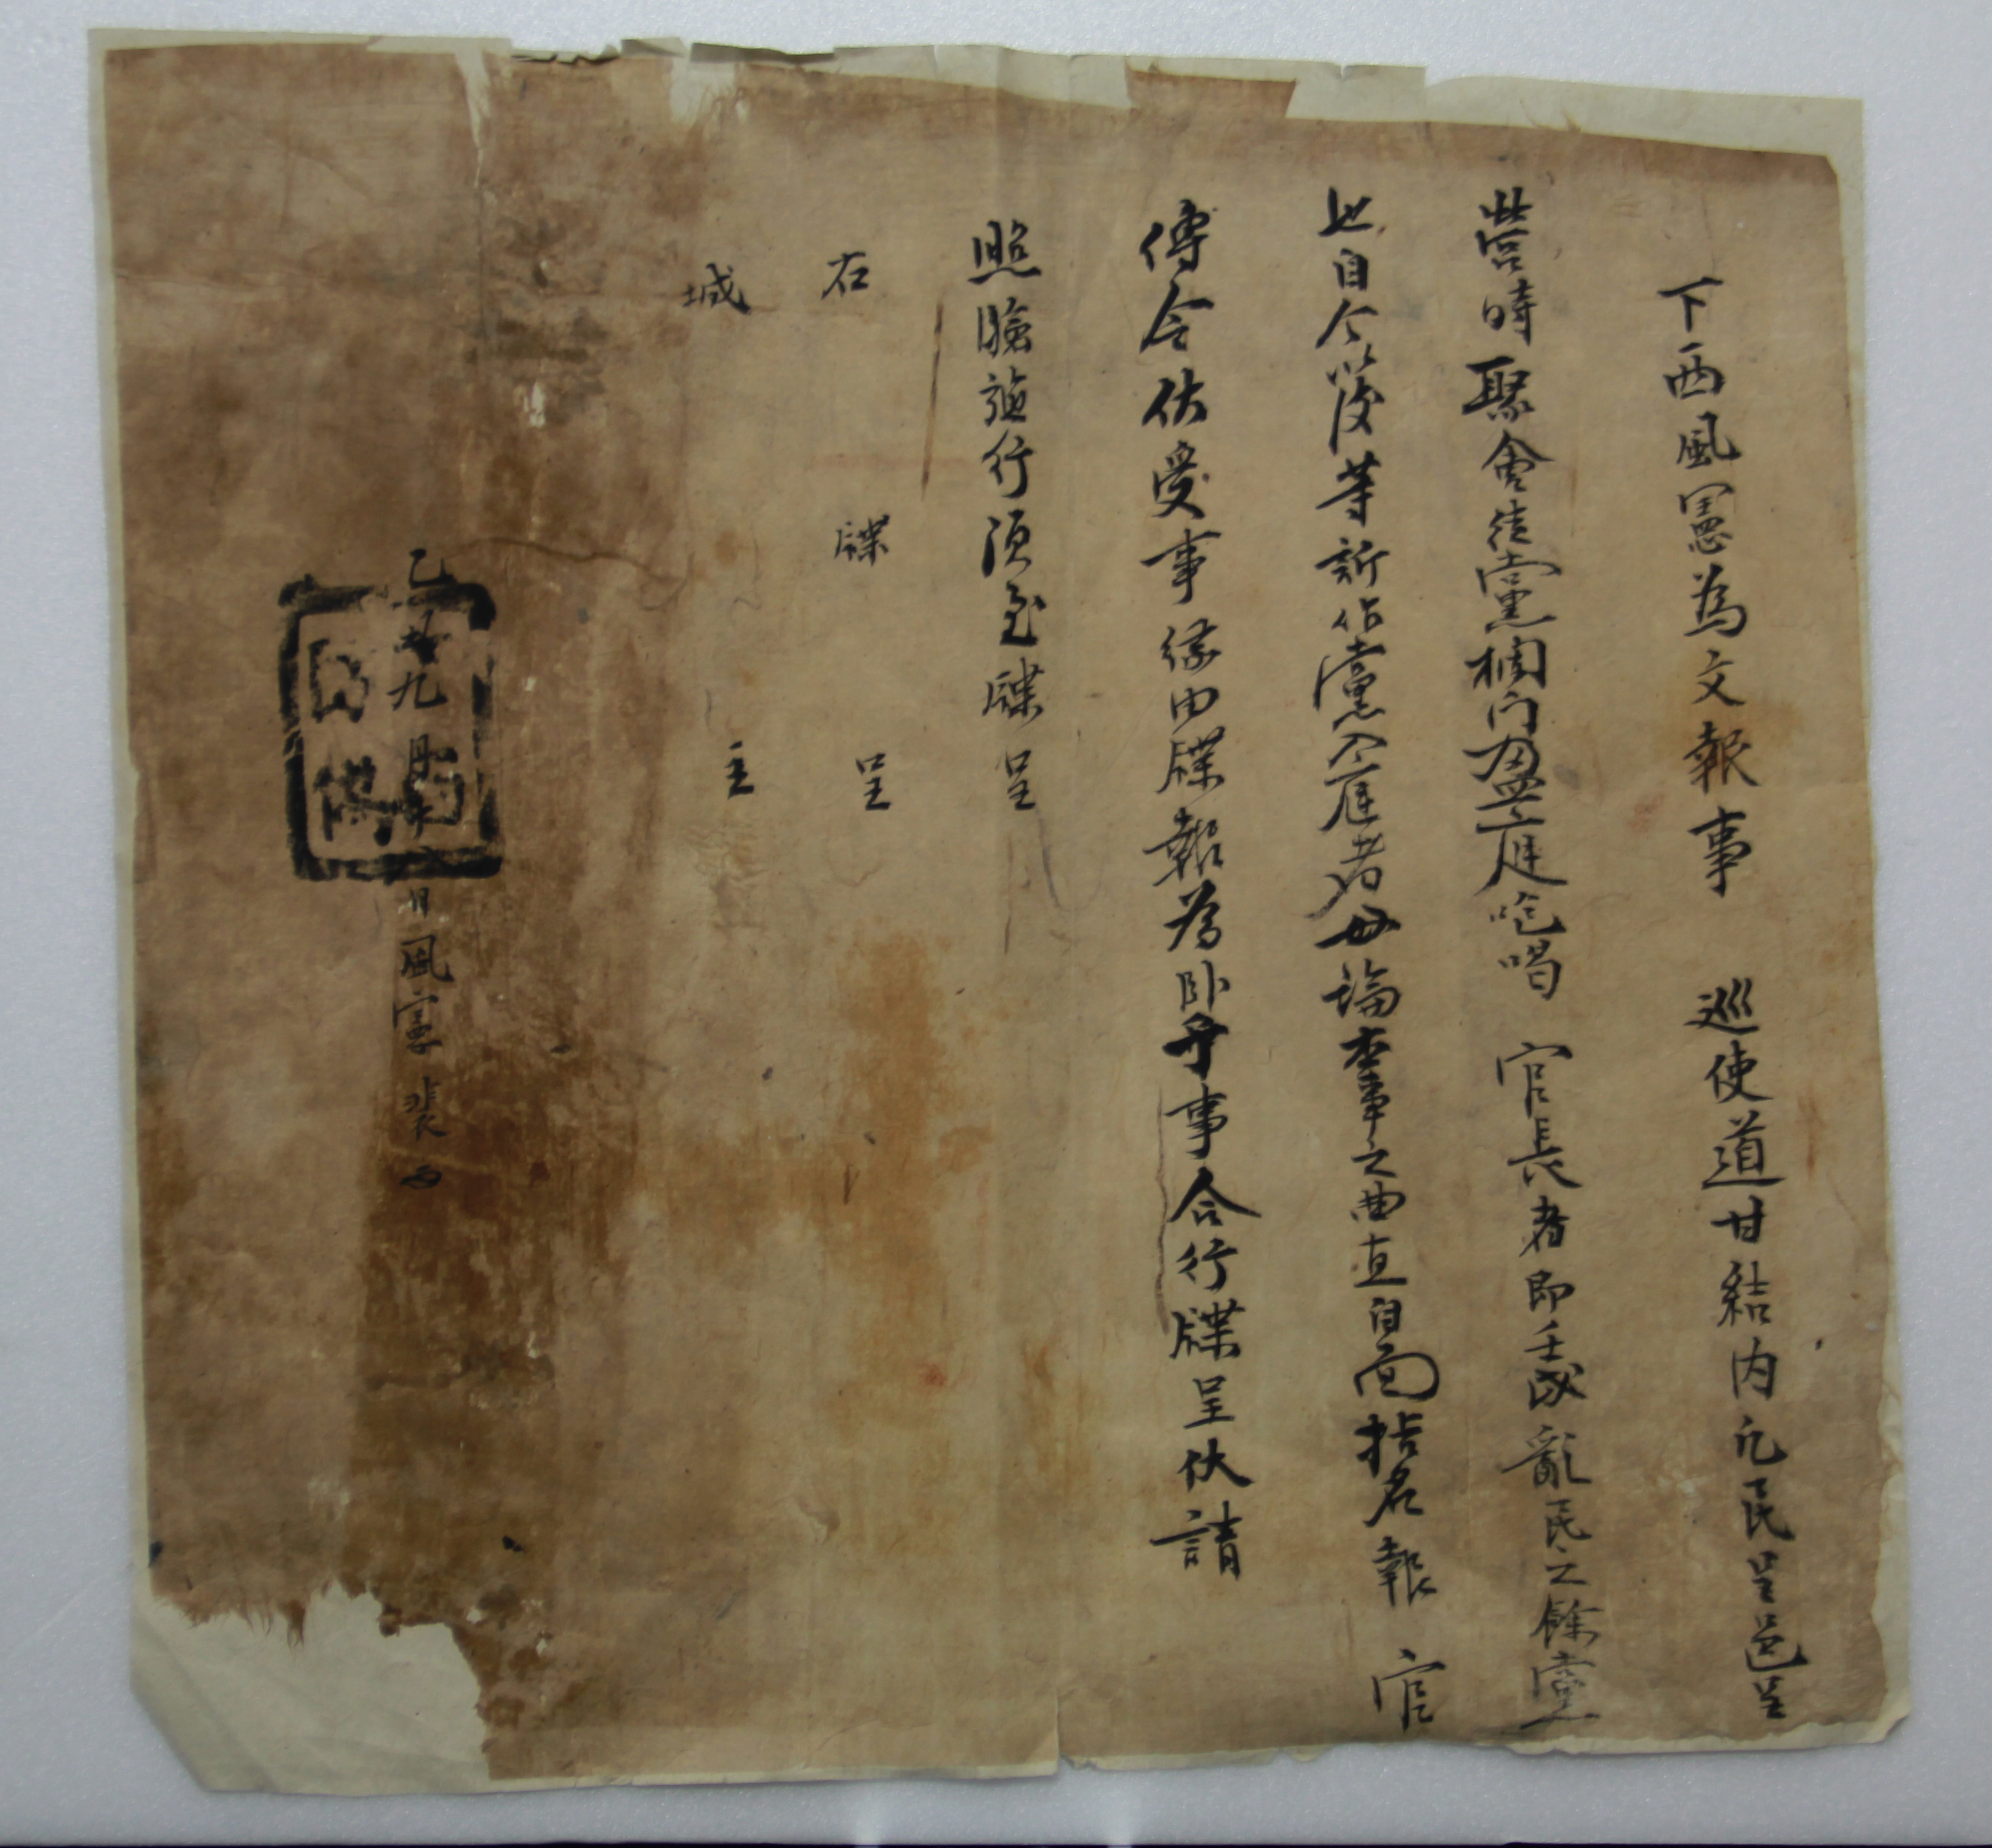 下西風憲為文報事 巡使道甘結內凡民呈邑呈
營時聚會徒黨欄門盈庭咆喝 官長者即壬戌亂民之餘黨
也自今以後等訴作黨入庭者毋論本事之曲直自面指名報 官
傳令依受事緣由牒報為卧乎事合行牒呈伏請
照驗施行須至牒呈
右 牒 呈
城 主
乙丑九月十 日風憲裴